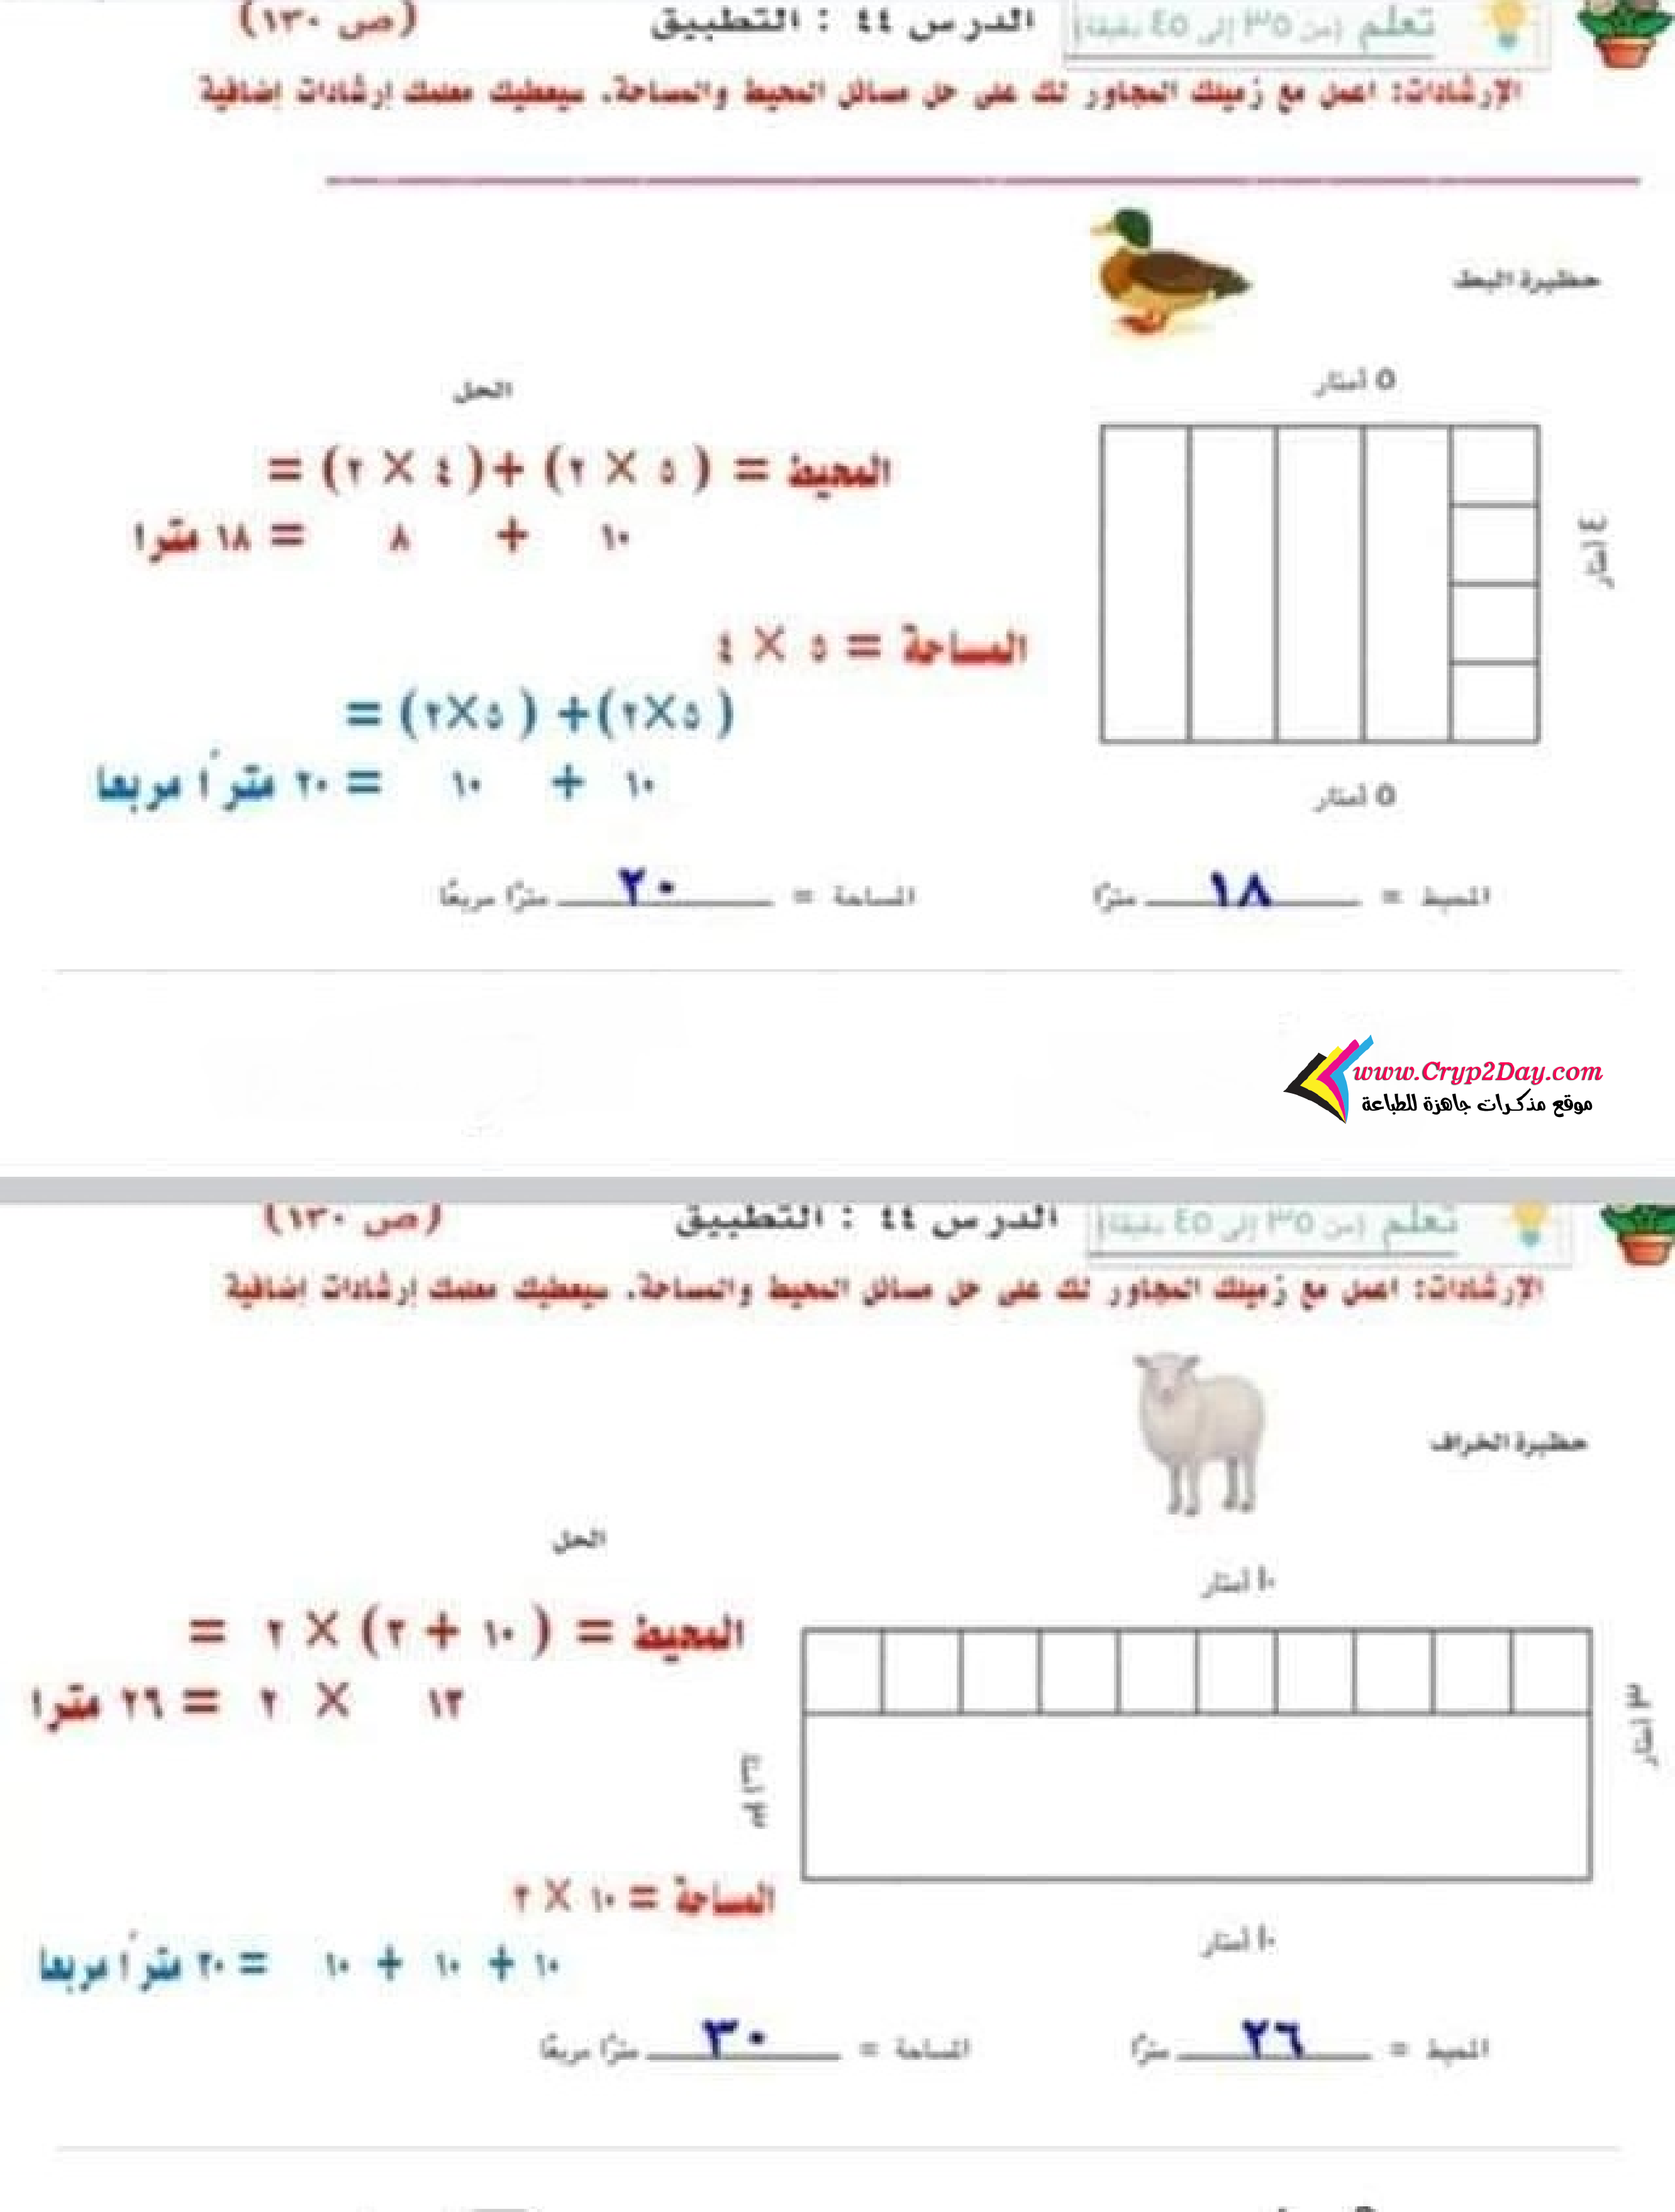 تعلم (من ٣٥ إلى ٤٥ دقيقة) الدرس ٤٤ : التطبيق (ص ١٣٠)
الإرشادات: اعمل مع زميلك المجاور لك على حل مسائل المحيط والمساحة. سيعطيك معلمك إرشادات إضافية
حظيرة البط
٥ أمتار
الحل
المحيط = ( ٥ × ٢) +( ٤ × ٢) =
١٠ + ٨ = ١٨ مترا
٤ أمتار
المساحة = ٥ × ٤
( ٥×٢)+ ( ٥×٢) =
١٠ + ١٠ = ٢٠ مترًا مربعا
٥ أمتار
المحيط = ١٨ مترًا المساحة = ٢٠ مترًا مربعًا
www.Cryp2Day.com
موقع مذكرات جاهزة للطباعة
تعلم (من ٣٥ إلى ٤٥ دقيقة) الدرس ٤٤ : التطبيق (ص ١٣٠)
الإرشادات: اعمل مع زميلك المجاور لك على حل مسائل المحيط والمساحة. سيعطيك معلمك إرشادات إضافية
حظيرة الخراف
الحل
١٠ أمتار
المحيط = ( ١٠ + ٣) × ٢ =
١٣ × ٢ = ٢٦ مترا
٣ أمتار
المساحة = ١٠ × ٣
١٠ + ١٠ + ١٠ = ٣٠ مترًا مربعا
١٠ أمتار
المحيط = ٢٦ مترًا المساحة = ٣٠ مترًا مربعًا